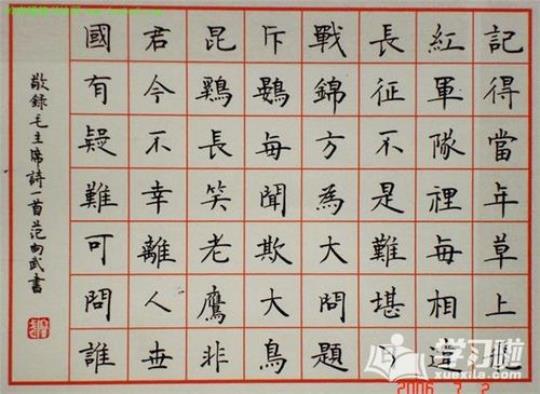 記得當年草上飛
紅軍隊裡每相違
長征不是難堪日
戰錦方為大問題
斥鷃每聞欺大鳥
昆鷄長笑老鷹非
君今不幸離人世
國有疑難可問誰
敬錄毛主席詩一首范向武書
学习啦
xuexila.com
2006 7 2